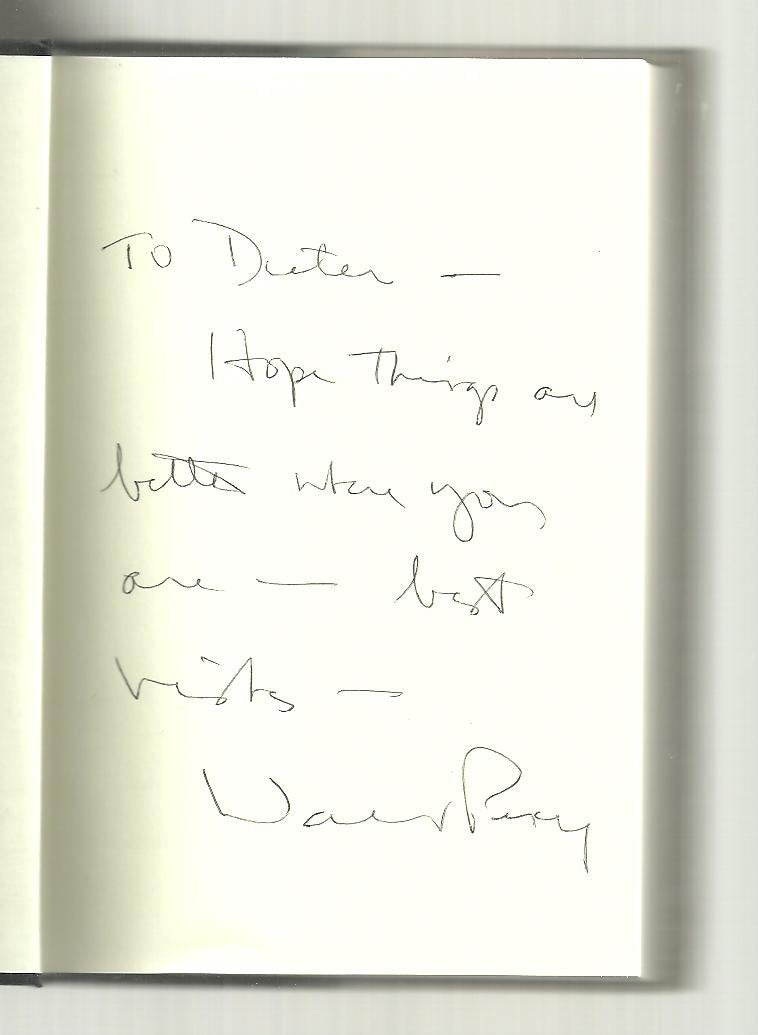 To Dieter —
Hope Things are
better where you
are — best
wishes —
Walker Percy